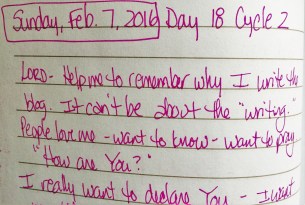 Sunday, Feb. 7, 2016 Day 18 Cycle 2
LORD - Help me to remember why I write the
blog. It can't be about the "writing.
People love me - want to know - want to pray
"How are You?"
I really want to declare You - I want